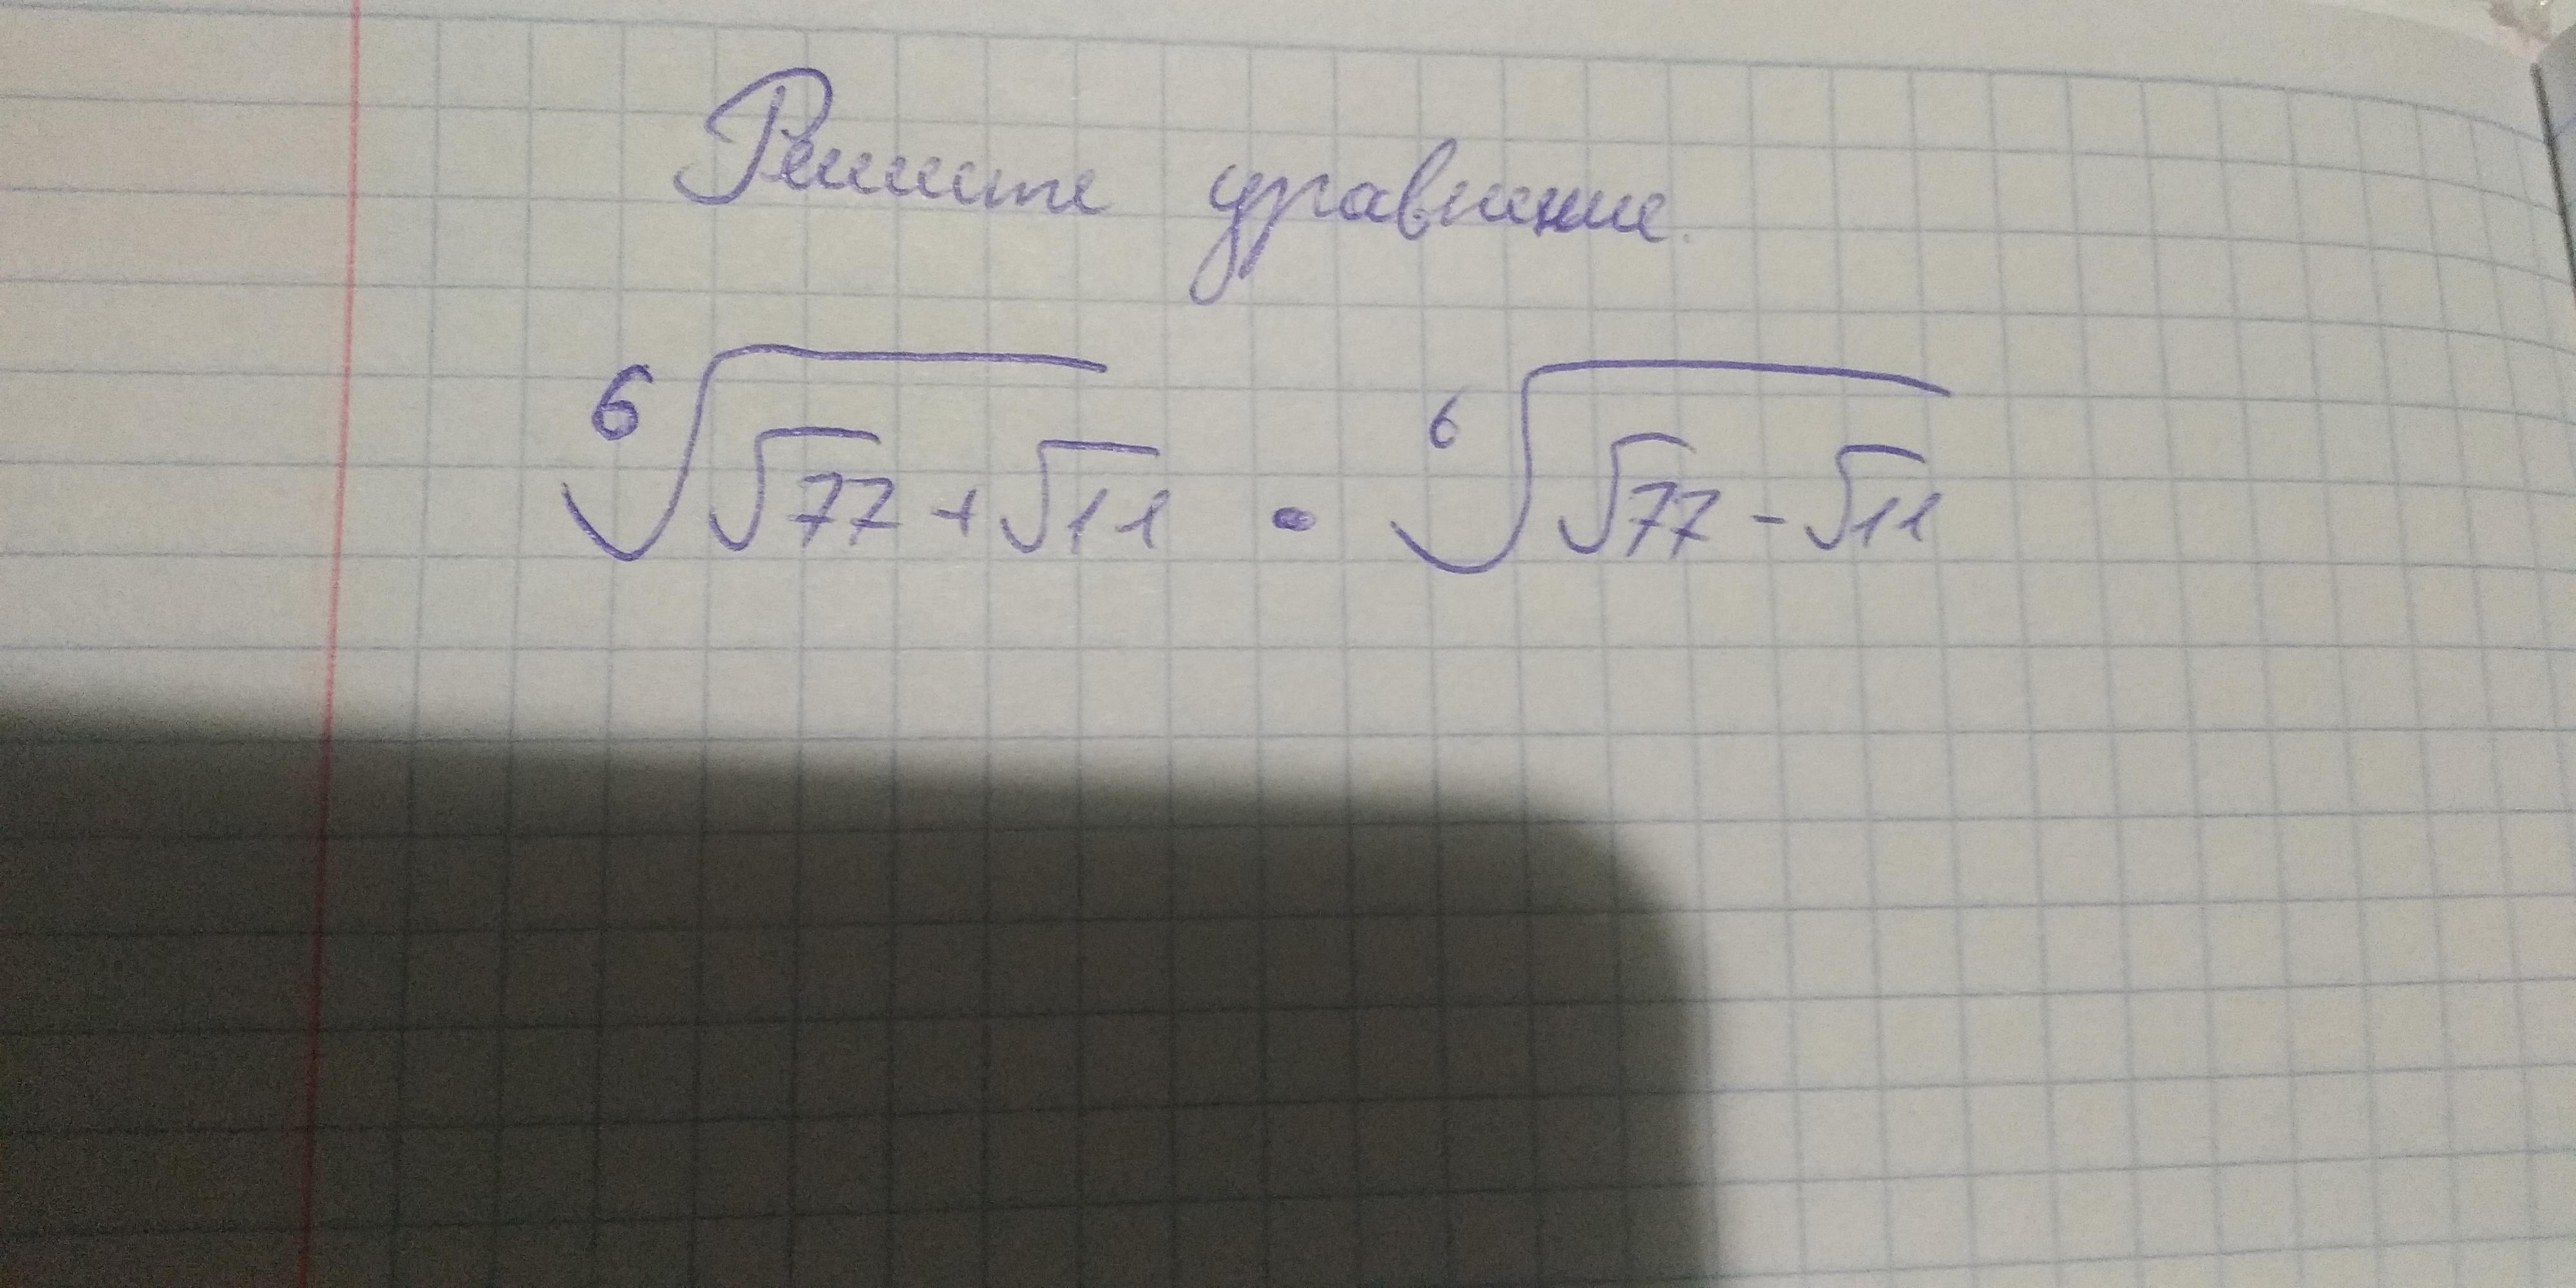 Решите уравнение.
⁶√(√77 + √11) • ⁶√(√77 - √11)